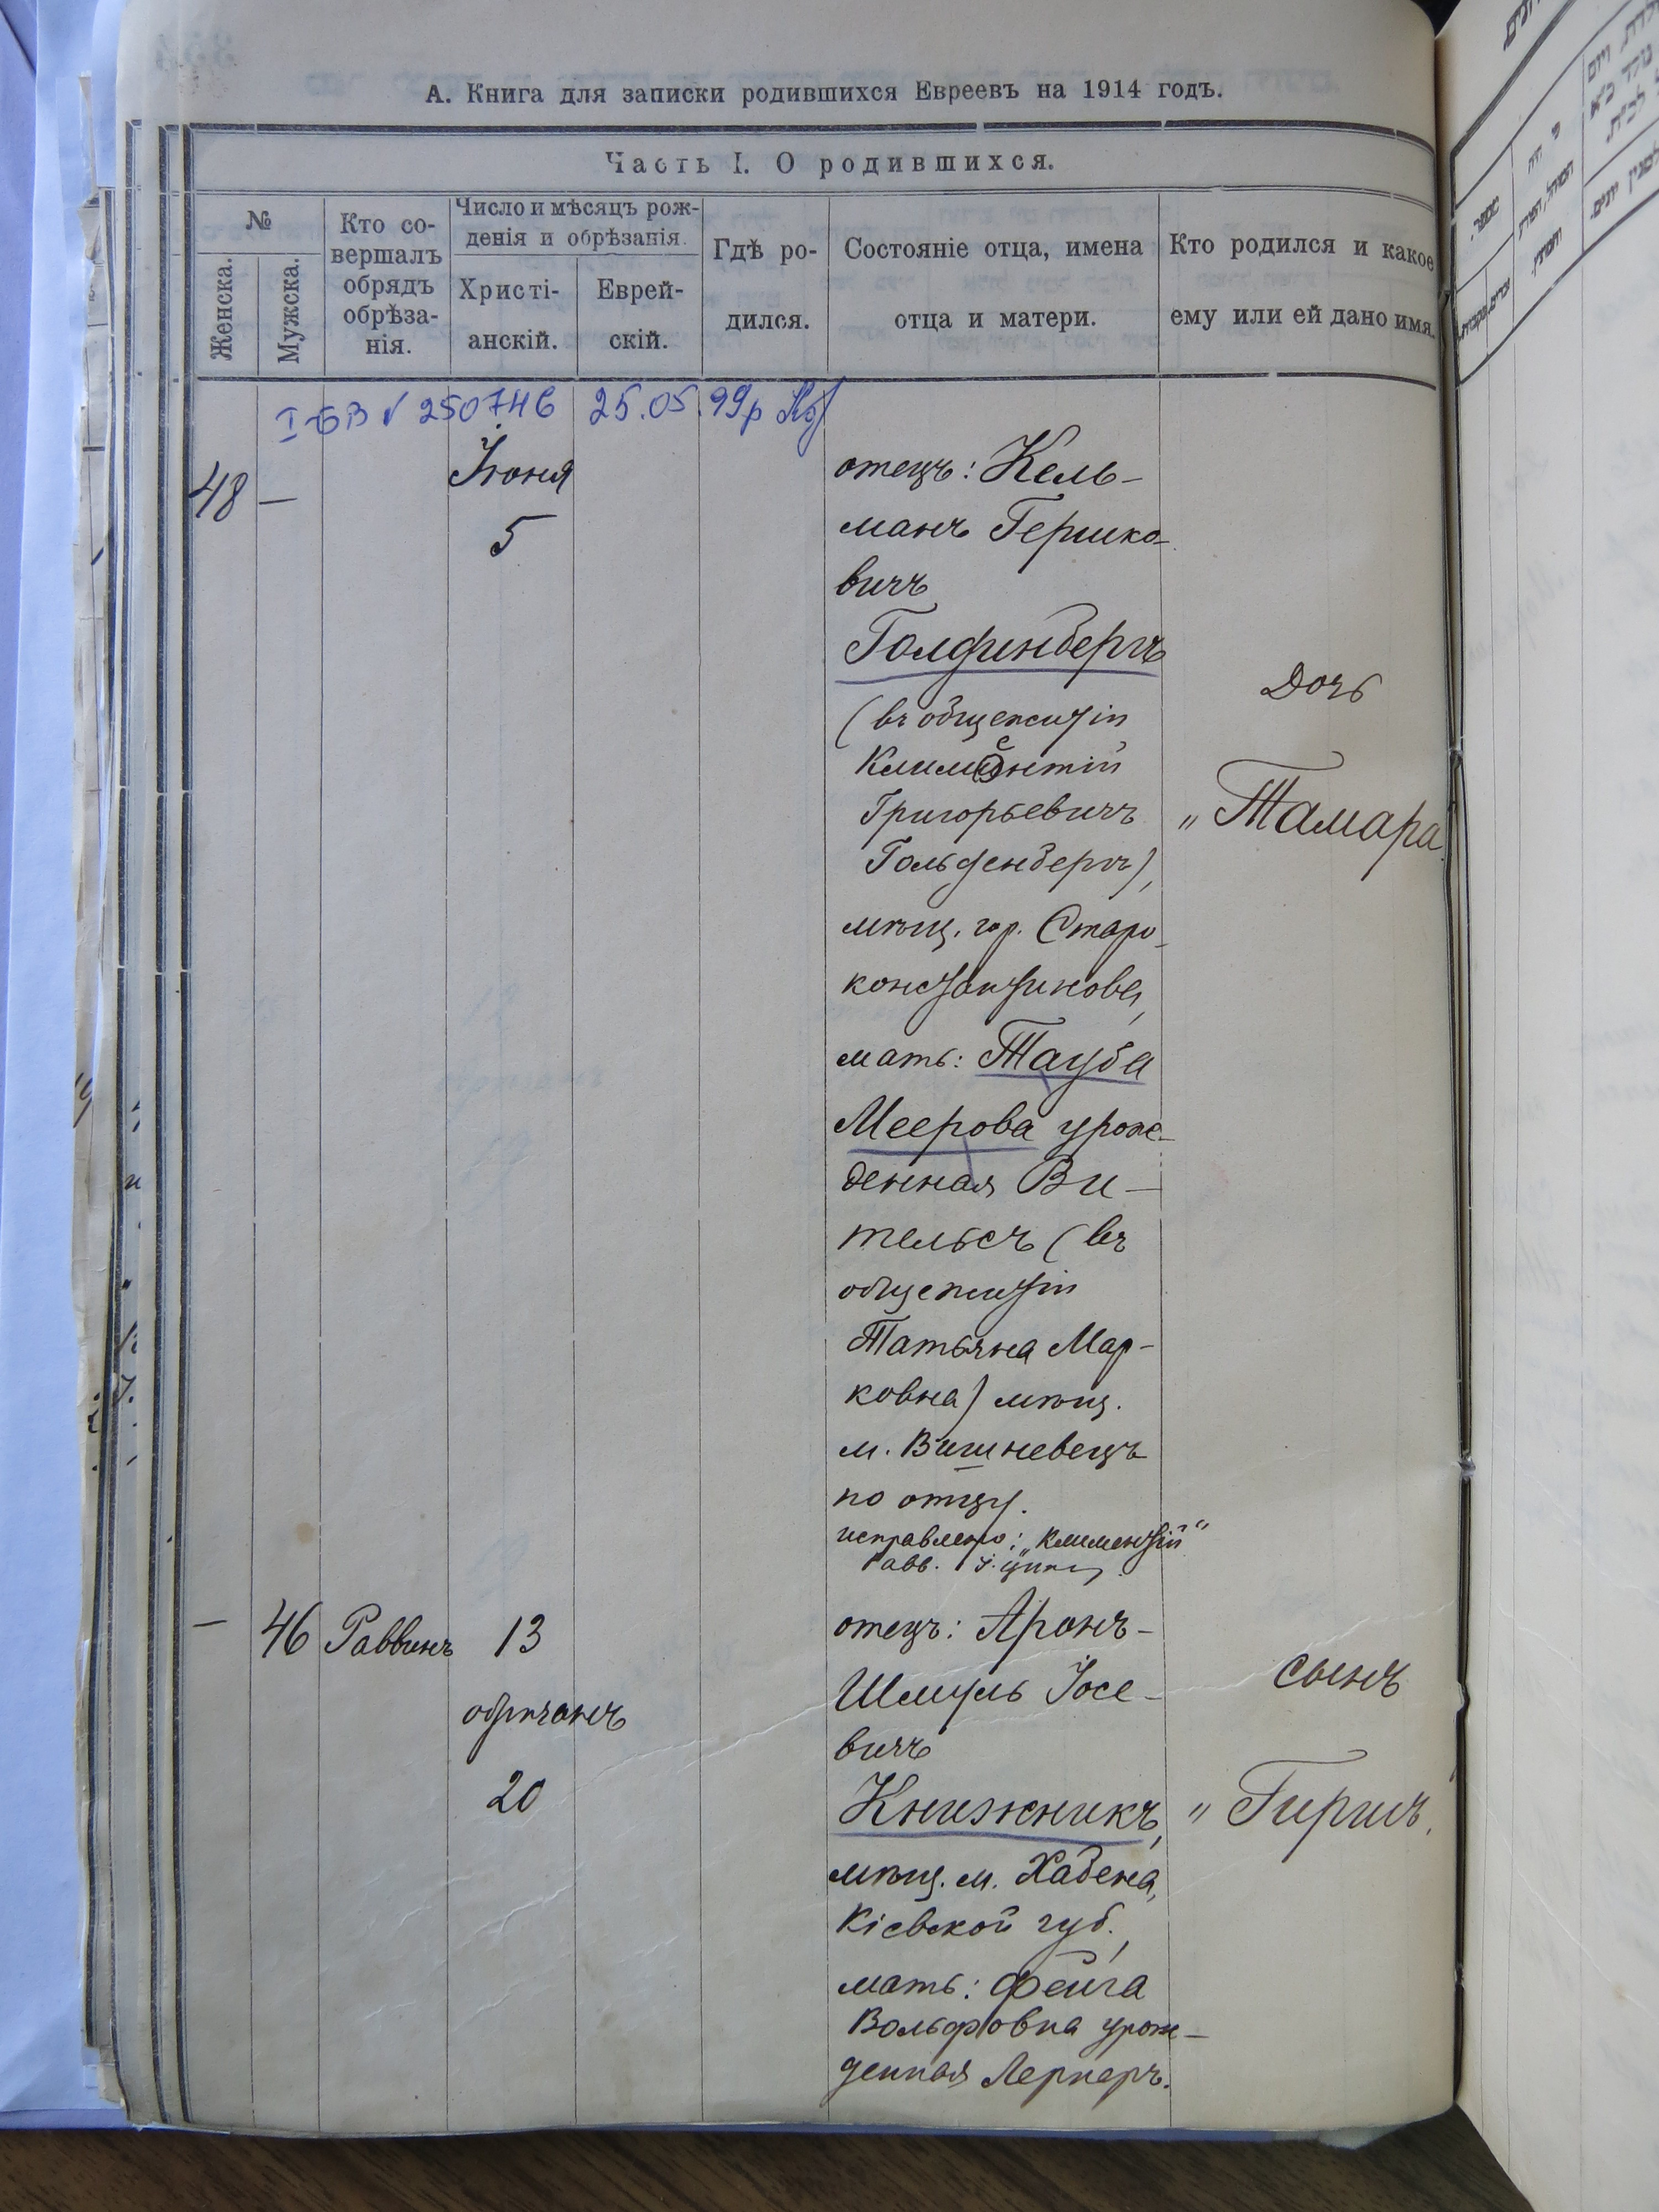 А. Книга для записки родившихся Евреевъ на 1914 годъ.
Часть I. О родившихся.
№
Женска.
Мужска.
Кто со-
вершалъ
обрядъ
обрѣза-
нія.
Число и мѣсяцъ рож-
денія и обрѣзанія.
Христі-
анскій.
Еврей-
скій.
Гдѣ ро-
дился.
Состояніе отца, имена
отца и матери.
Кто родился и какое
ему или ей дано имя.
I-БВ № 250746 25.05.99р
48 —
Іюня
5
отецъ: Кель-
манъ Гершко-
вичъ
Голдинбергъ
(въ общежитіи
Климентій
Григорьевичъ
Гольденбергъ),
мѣщ. гор. Старо-
константинова,
мать: Тауба
Меерова урож-
денная Ви-
тельсъ (въ
общежитіи
Татьяна Мар-
ковна) мѣщ.
м. Вишневецъ
по отцу.
исправлено: „Климентій“
Равв.
Дочь
„Тамара
— 46 Раввинъ 13
обрѣзанъ
20
отецъ: Аронъ-
Шмуль Іосе-
вичъ
Книжникъ,
мѣщ. м. Хабена,
Кіевской губ.,
мать: Фейга
Вольфовна урож-
денная Лернеръ.
сынъ
„Гиршъ.